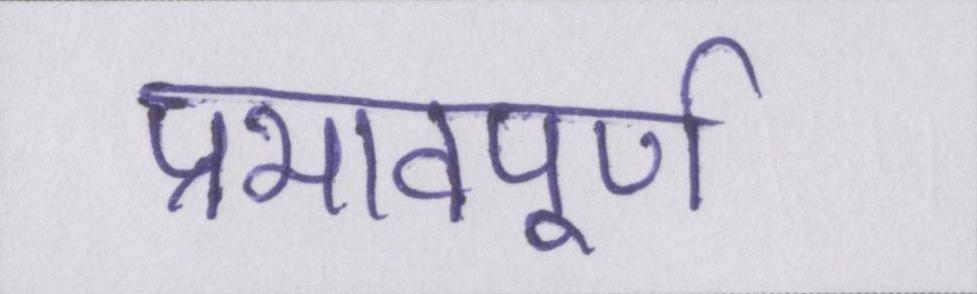 प्रभावपूर्ण